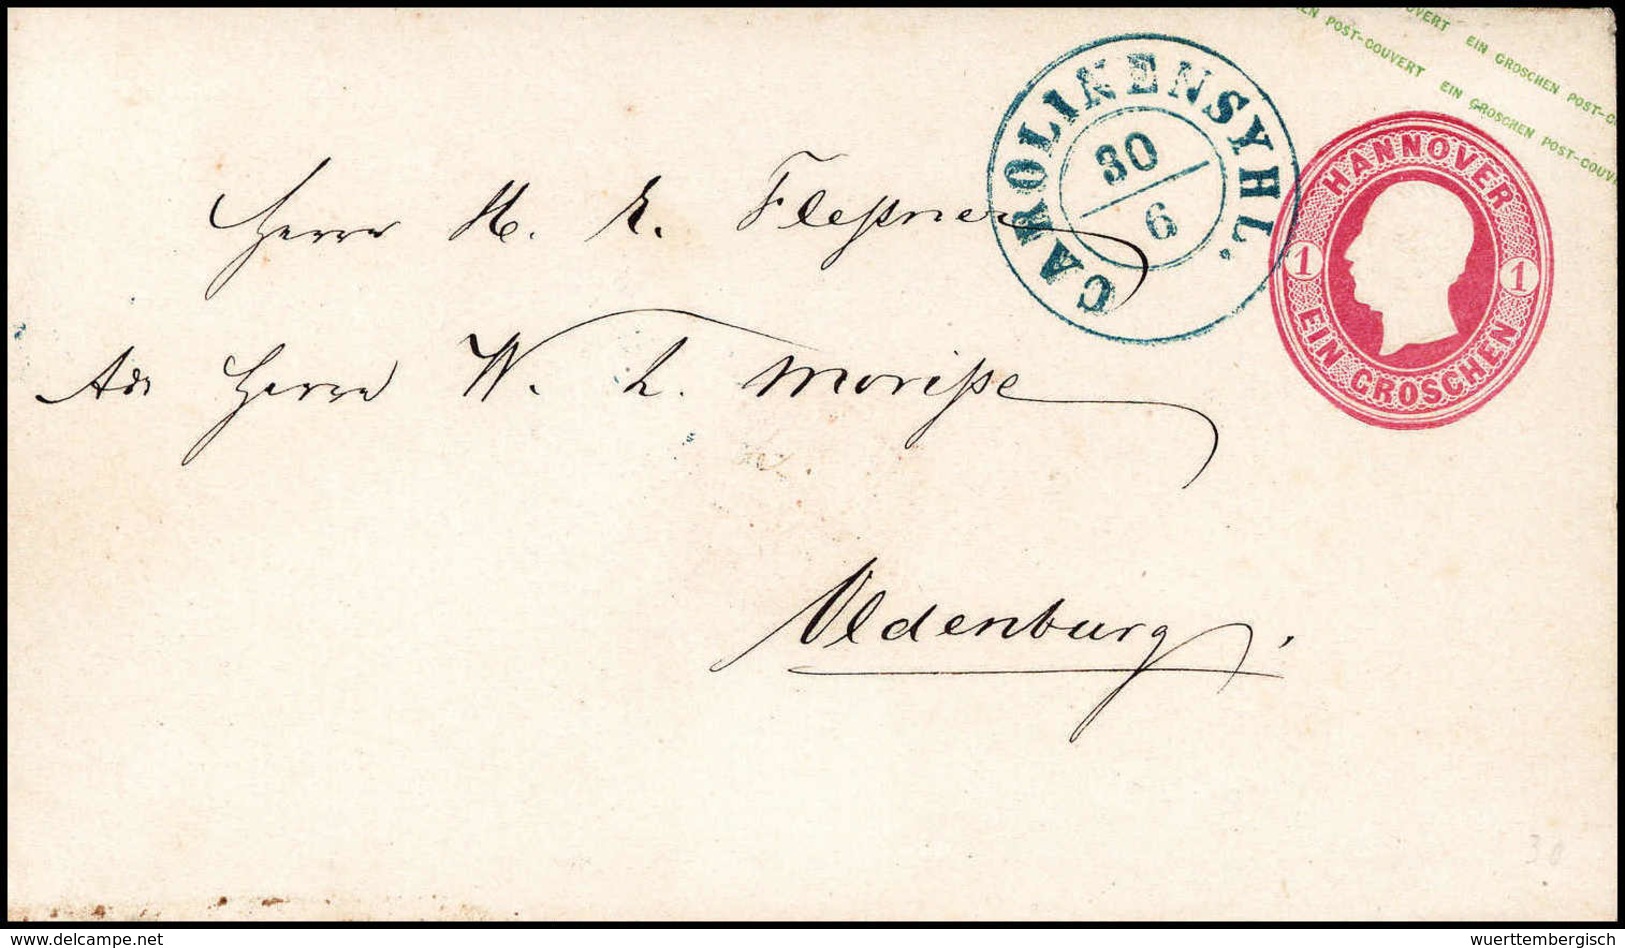 EN POST-COUVERT EIN GROSCHEN POST-COUV
UVERT EIN GROSCHEN POST-C
CAROLINENSYHL.
30
6
HANNOVER
1 1
EIN GROSCHEN
Herrn H. E. Fleßner
Herrn W. L. Morisse
Oldenburg.
30
www.delcampe.net
wuerttembergisch